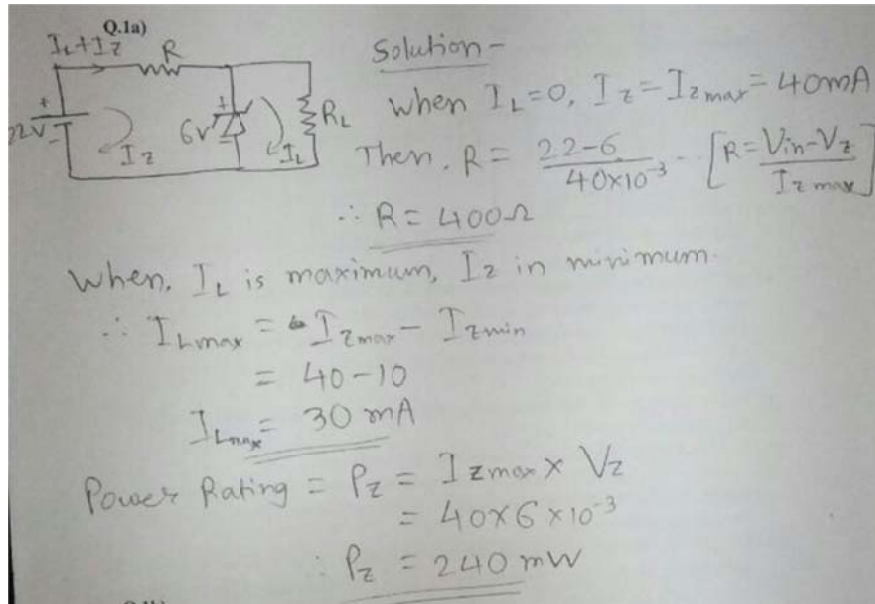 Q.1a)
IL+IZ
R
22V
+
-
IZ
6V
+
IL
RL
Solution-
when IL=0, Iz=Izmax=40mA
Then, R= 22-6 / 40×10-3 - [R= Vin-Vz / Iz max]
∴ R= 400Ω
When, IL is maximum, Iz in minimum.
∴ ILmax = Izmax - Izmin
= 40-10
ILmax= 30 mA
Power Rating = Pz = Izmax x Vz
= 40×6×10-3
∴ Pz = 240 mW